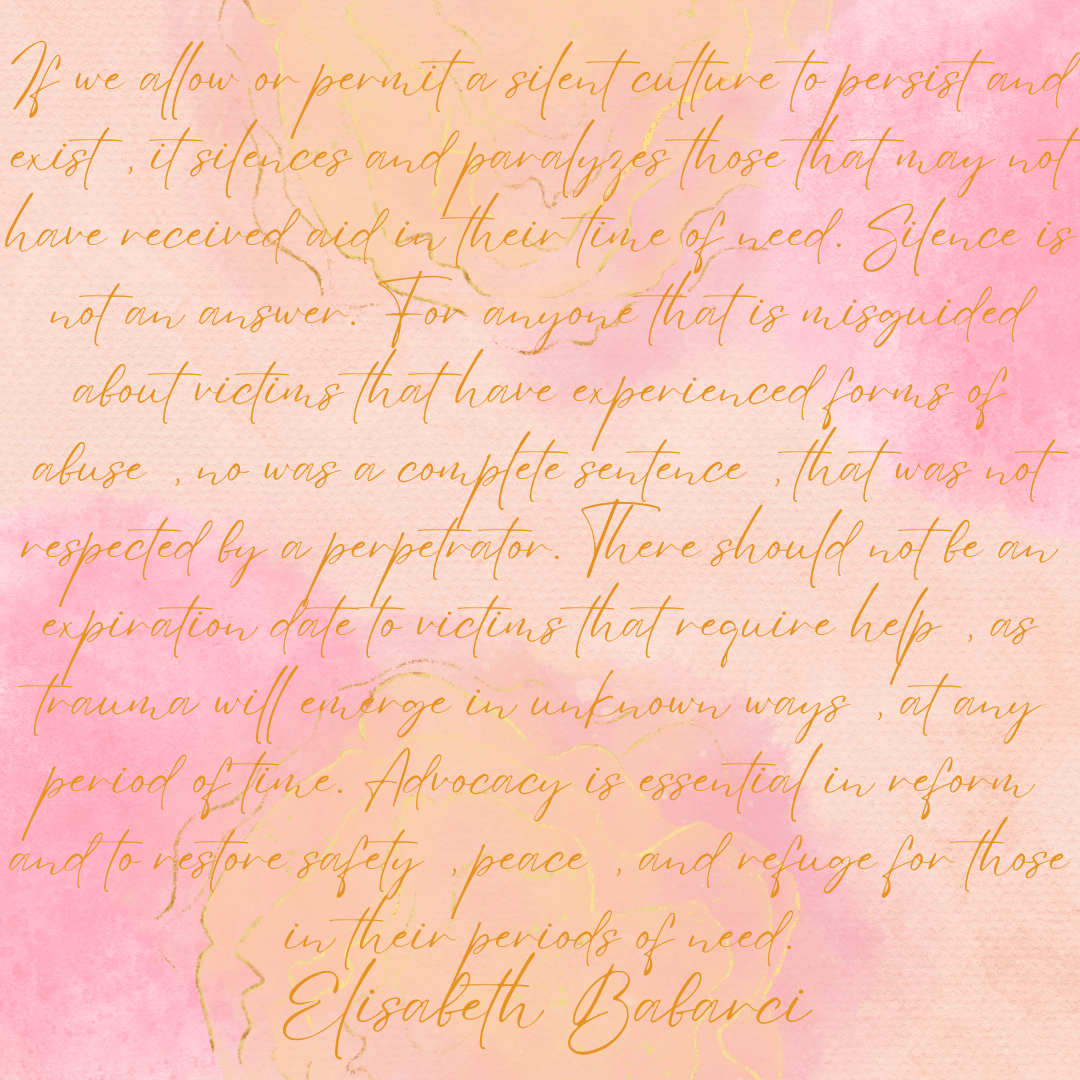 If we allow or permit a silent culture to persist and
exist , it silences and paralyzes those that may not
have received aid in their time of need. Silence is
not an answer. For anyone that is misguided
about victims that have experienced forms of
abuse , no was a complete sentence , that was not
respected by a perpetrator. There should not be an
expiration date to victims that require help , as
trauma will emerge in unknown ways , at any
period of time. Advocacy is essential in reform
and to restore safety , peace , and refuge for those
in their periods of need.
Elisabeth Babarci